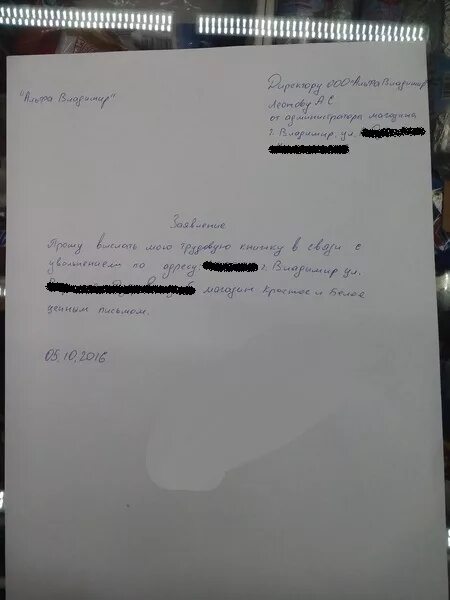 "Альфа Владимир"
Директору ООО "Альфа Владимир"
Леонову А С
от администратора магазина
г. Владимир, ул.
Заявление
Прошу выслать мою трудовую книжку в связи с
увольнением по адресу: г. Владимир ул.
магазин Красное и Белое
ценным письмом.
05.10.2016